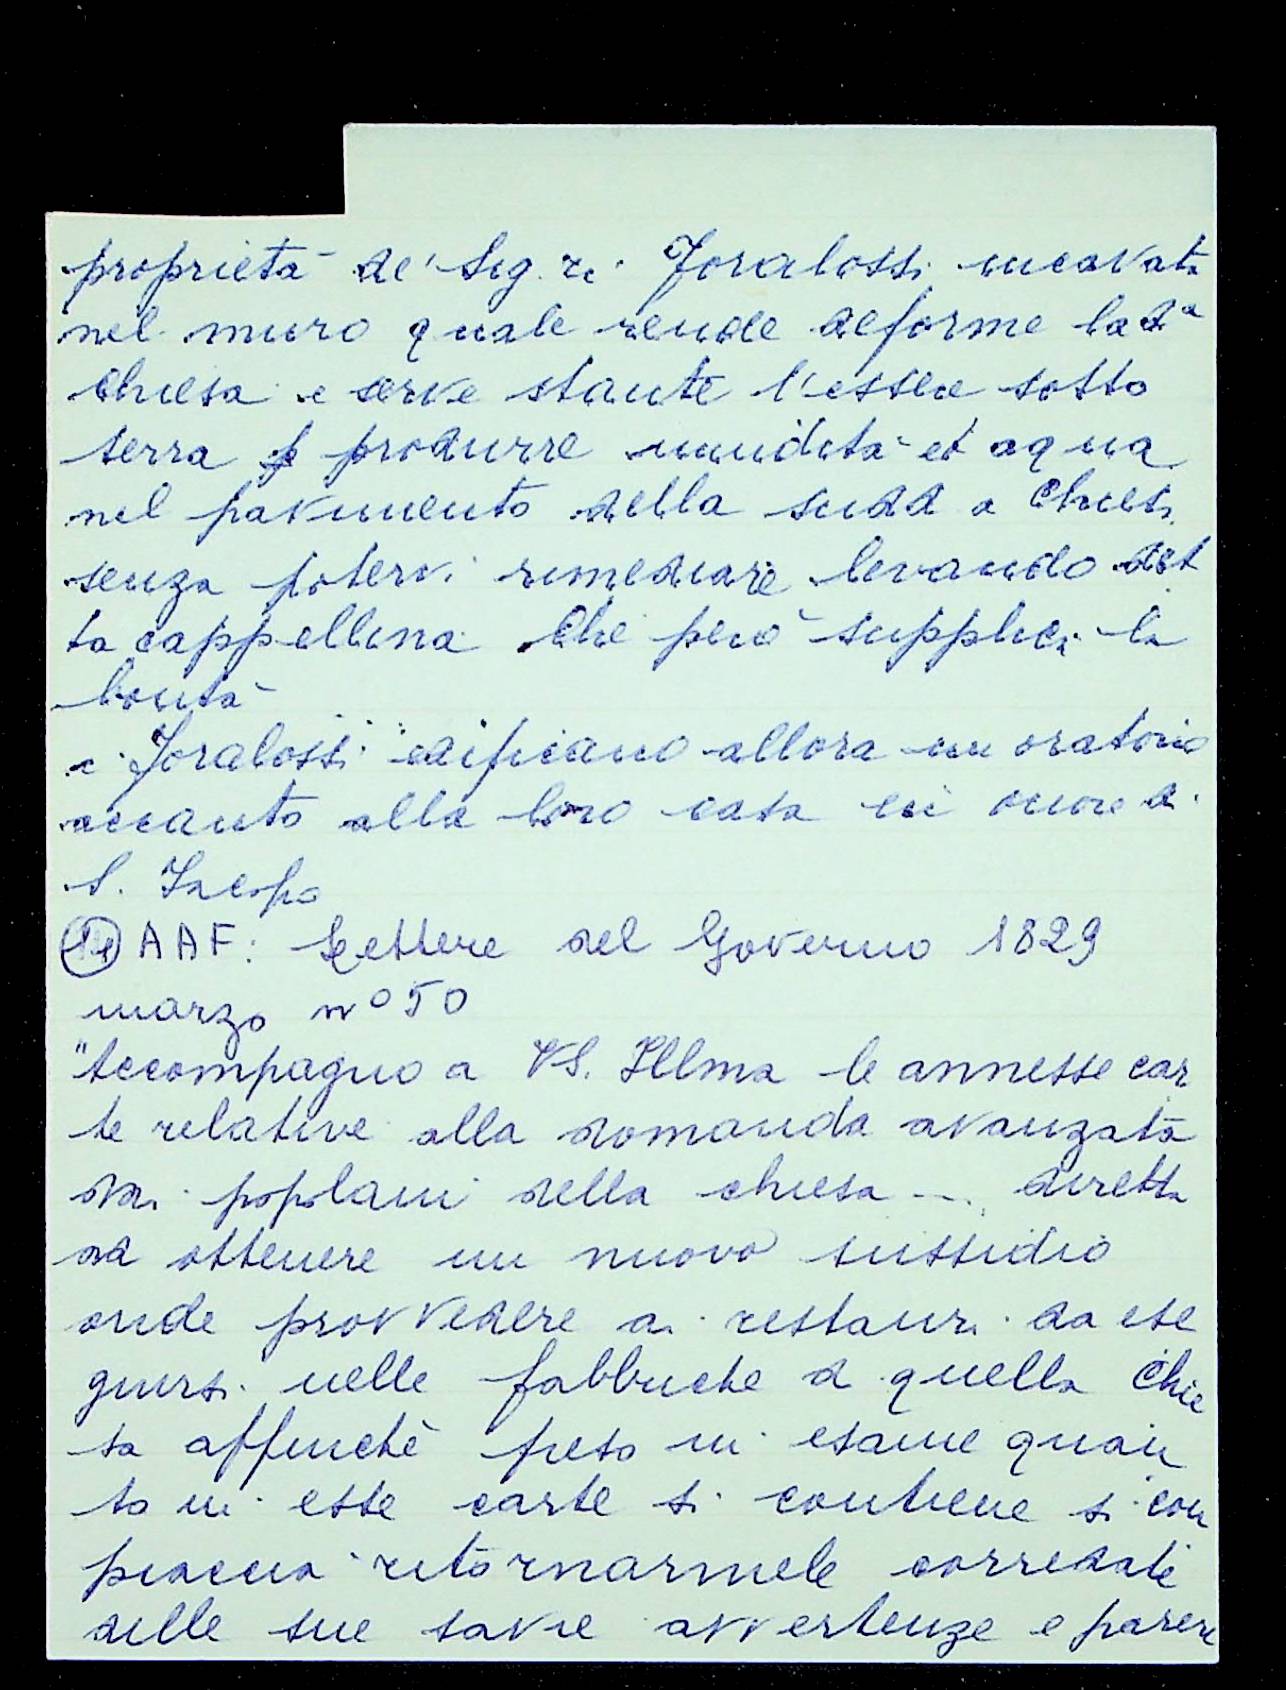 proprietà de' Sig.ri Foralossi incavata
nel muro quale rende deforme la da
Chiesa e serve stante l'essere sotto
terra p produrre umidità et aqua
nel pavimento della sudd a Chiesa
senza potervi rimediare levando det
ta cappellina Che però supplica la
bontà
i Foralossi edificano allora un oratorio
accanto alla loro casa in onore di
S. Iacopo
AAF: Lettere del Governo 1829
marzo n° 50
"Accompagno a VS. Illma le annesse car
te relative alla domanda avanzata
dai popolani della chiesa ... diretta
ad ottenere un nuovo sussidio
onde provvedere ai restauri da ese
guirsi nelle fabbriche di quella Chie
sa affinchè preso in esame quan
to in esse carte si contiene si com
piaccia ritornarmele corredate
delle sue savie avvertenze e parere